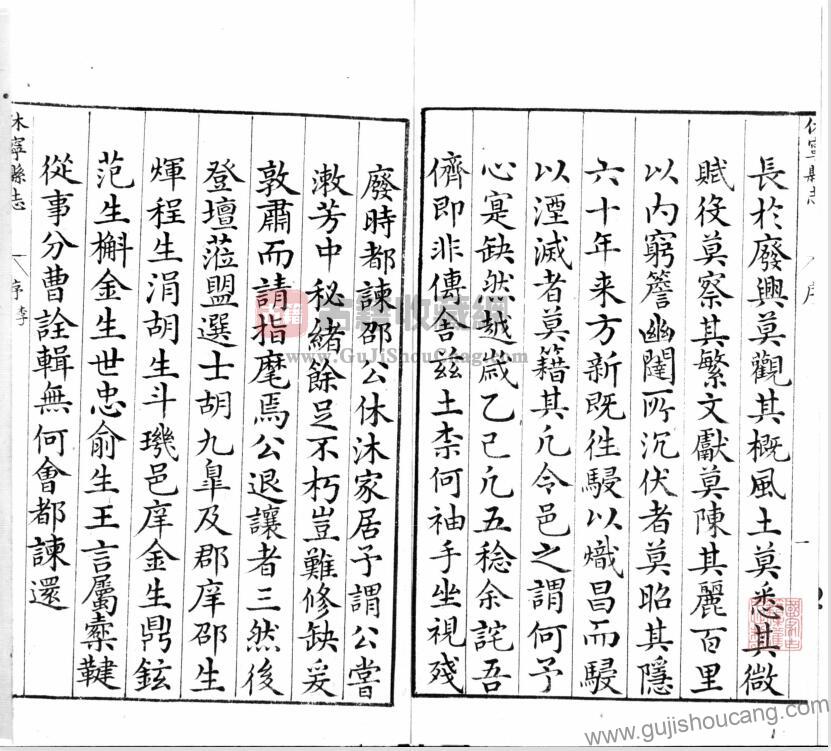 休寧縣志
序
一
長於廢興莫觀其概風土莫悉其微
賦役莫察其繁文獻莫陳其麗百里
以内窮簷幽闥所沉伏者莫昭其隱
六十年来方新既徃駸以熾昌而駸
以湮滅者莫籍其凢令邑之謂何予
心寔缺然越嵗乙巳凢五稔余詫吾
儕即非傳舍兹土柰何袖手坐視殘
廢時都諫邵公休沐家居予謂公嘗
漱芳中秘緒餘足不朽豈難修缺爰
敦肅而請指麾焉公退讓者三然後
登壇蒞盟選士胡九臯及郡庠邵生
煇程生涓胡生斗璣邑庠金生鼎鉉
范生槲金生世忠俞生王言屬櫜鞬
從事分曹詮輯無何會都諫還
休寧縣志
序李
古籍收藏網
www.GuJiShouCang.com
www.gujishoucang.com